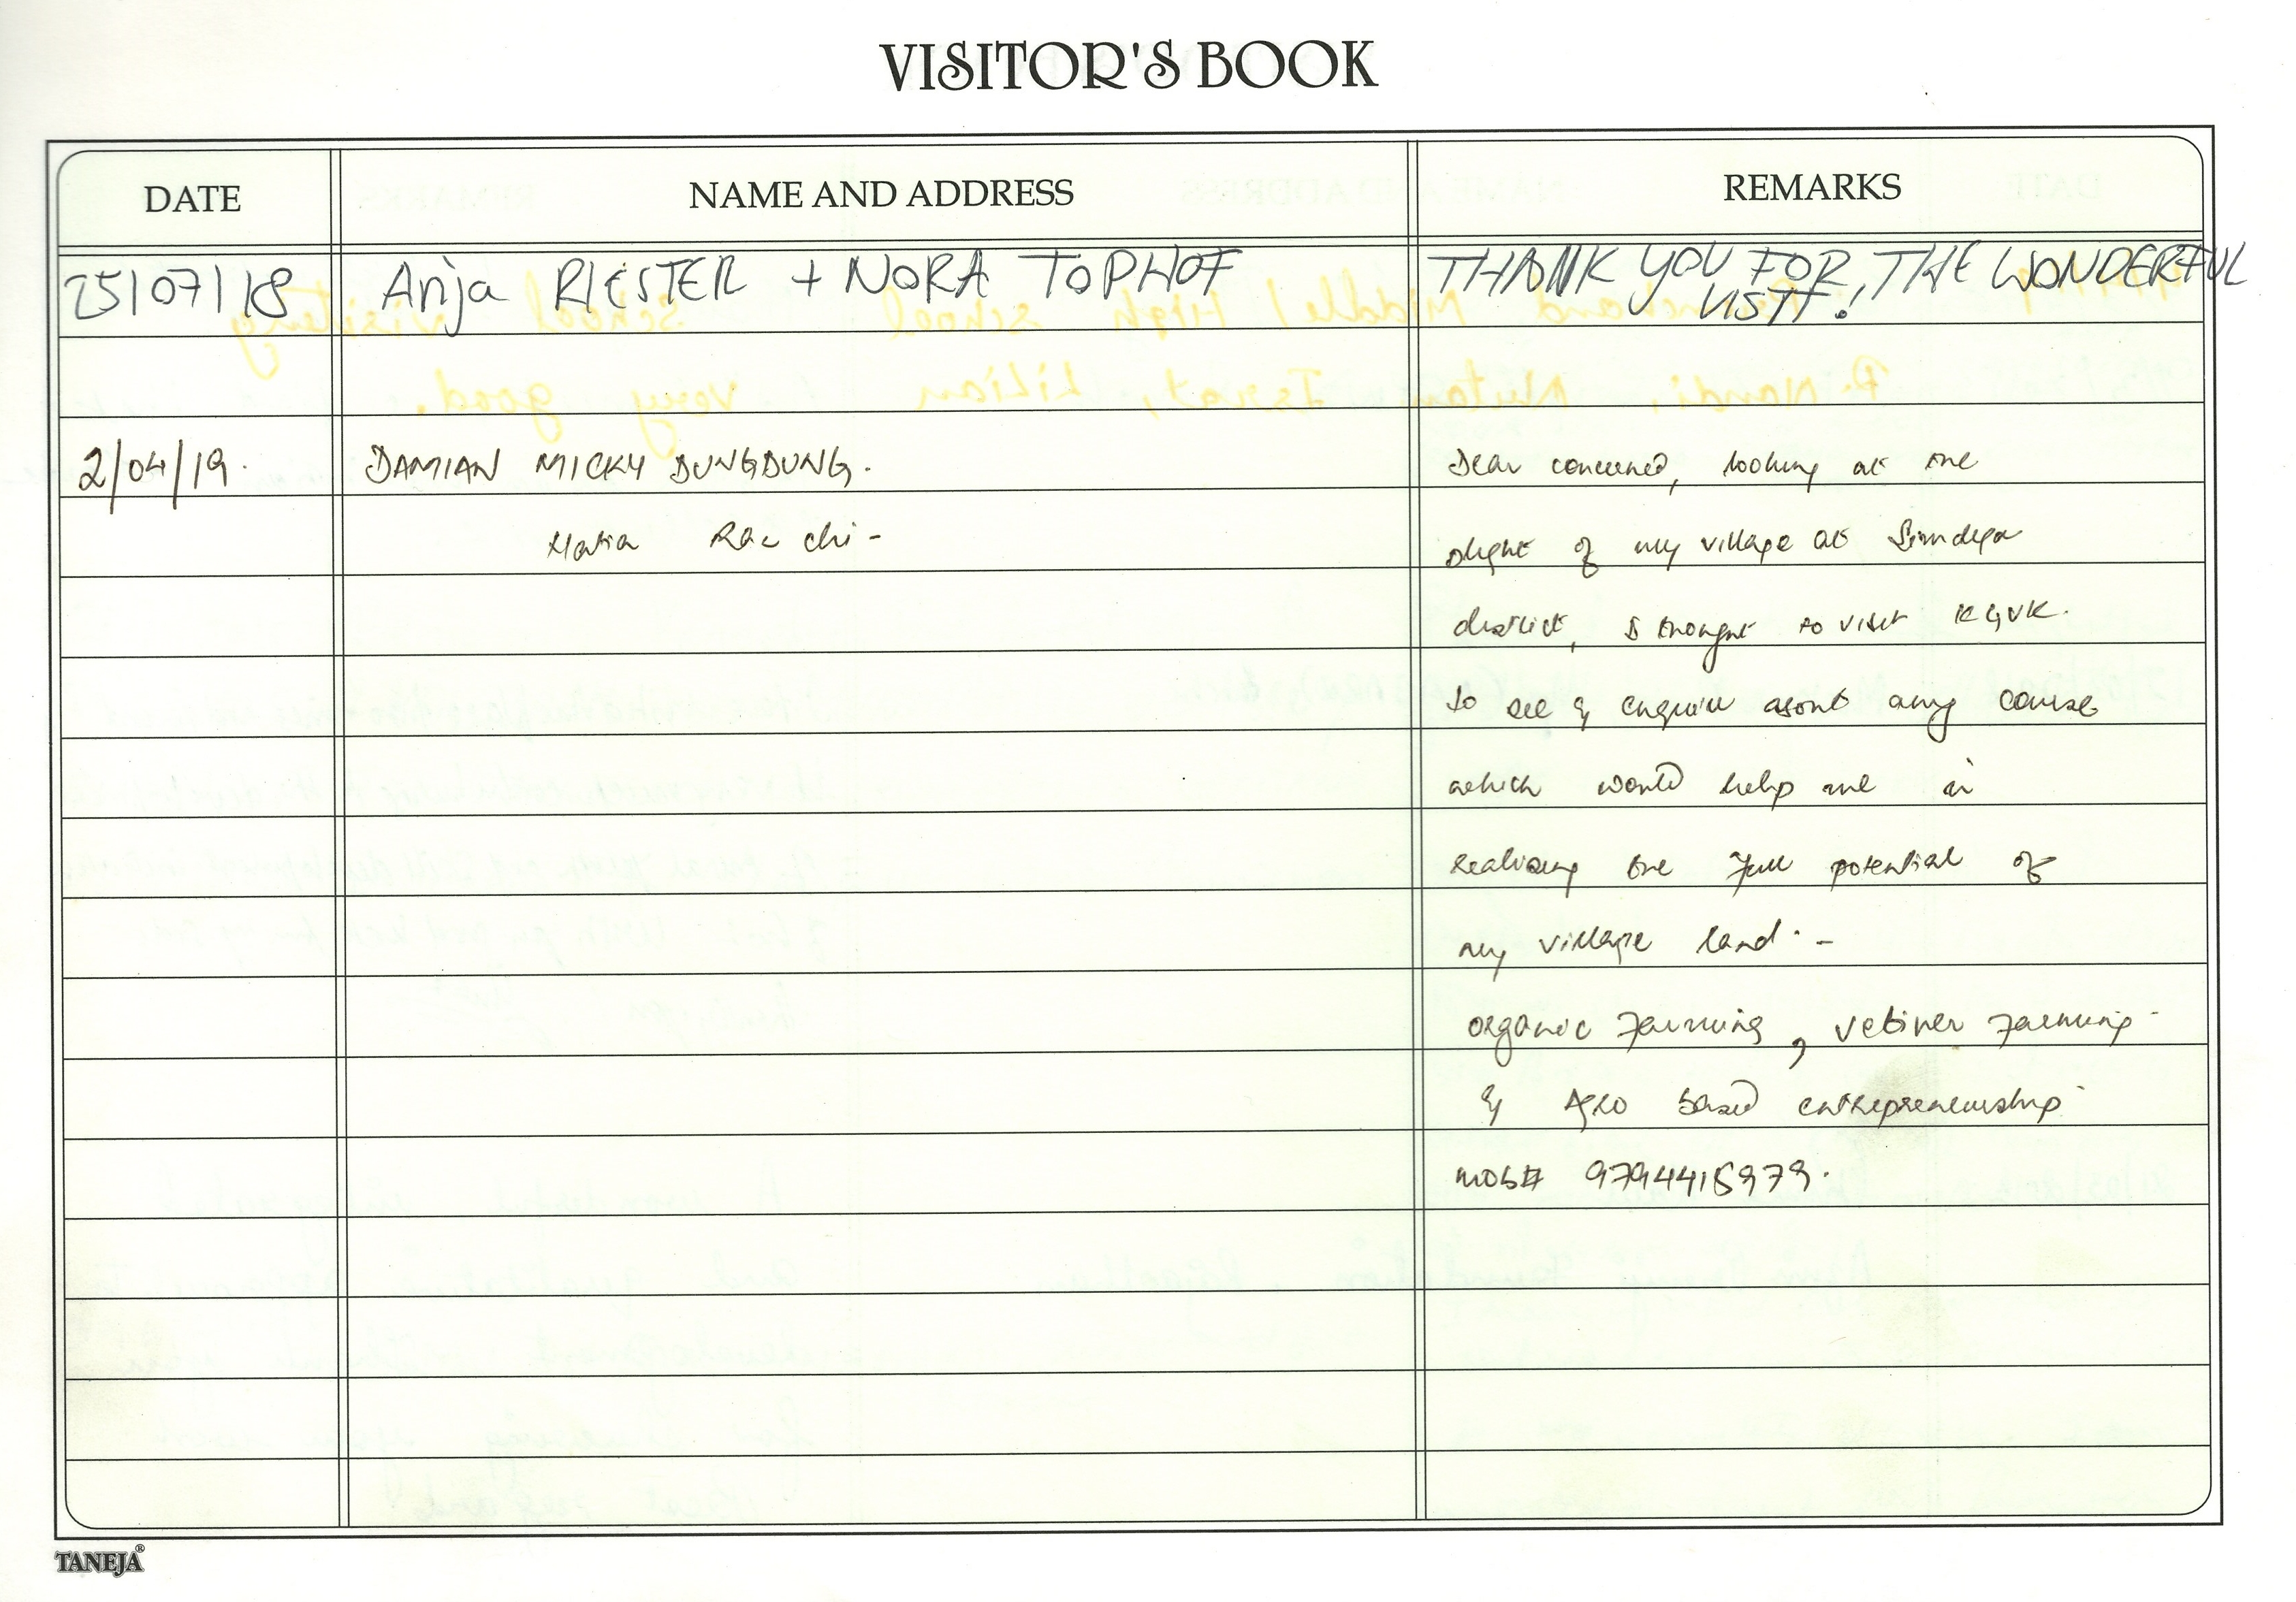 VISITOR'S BOOK
DATE NAME AND ADDRESS REMARKS
25/07/18 Anja RIESTER + NORA TOPHOF THANK YOU FOR THE WONDERFUL
VISIT!
2/04/19. DAMIAN MICKY DUNGDUNG. Dear concerned, looking at the
Hatia Ranchi - plight of my village at Simdega
district, I thought to visit KGVK.
to see & enquire about any course
which would help me in
realising the full potential of
my village land. -
organic farming, vetiver farming -
& Agro based entrepreneurship
mob#
TANEJA®